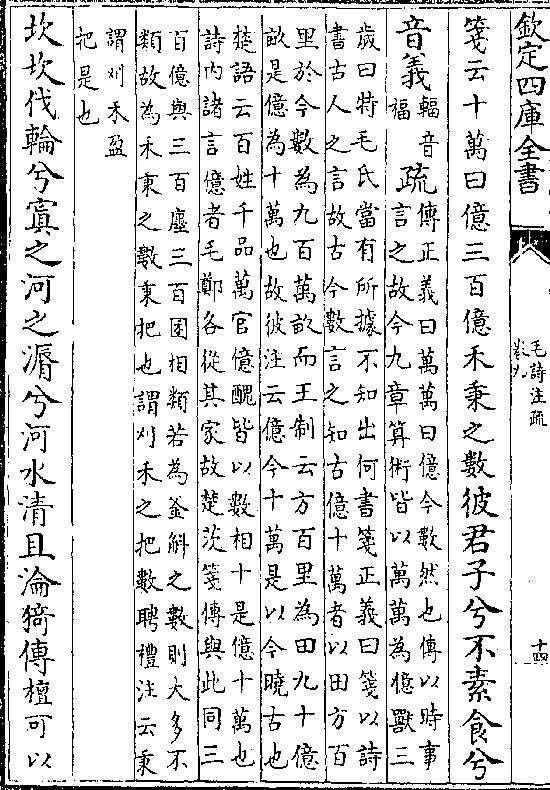 欽定四庫全書
毛詩注疏
卷九
十四
箋云十萬曰億三百億禾秉之數彼君子兮不素食兮
音義
輻音
福
疏
傳正義曰萬萬曰億今數然也傳以時事
言之故今九章算術皆以萬萬為億獸三
歲曰特毛氏當有所據不知出何書箋正義曰箋以詩
書古人之言故古今數言之知古億十萬者以田方百
里於今數為九百萬畝而王制云方百里為田九十億
畝是億為十萬也故彼注云億今十萬是以今曉古也
楚語云百姓千品萬官億醜皆以數相十是億十萬也
詩內諸言億者毛鄭各從其家故楚茨箋傳與此同三
百億與三百廛三百囷相類若為釜斛之數則大多不
類故為禾秉之數秉把也謂刈禾之把數聘禮注云秉
謂刈禾盈
把是也
坎坎伐輪兮寘之河之漘兮河水清且淪猗傳檀可以